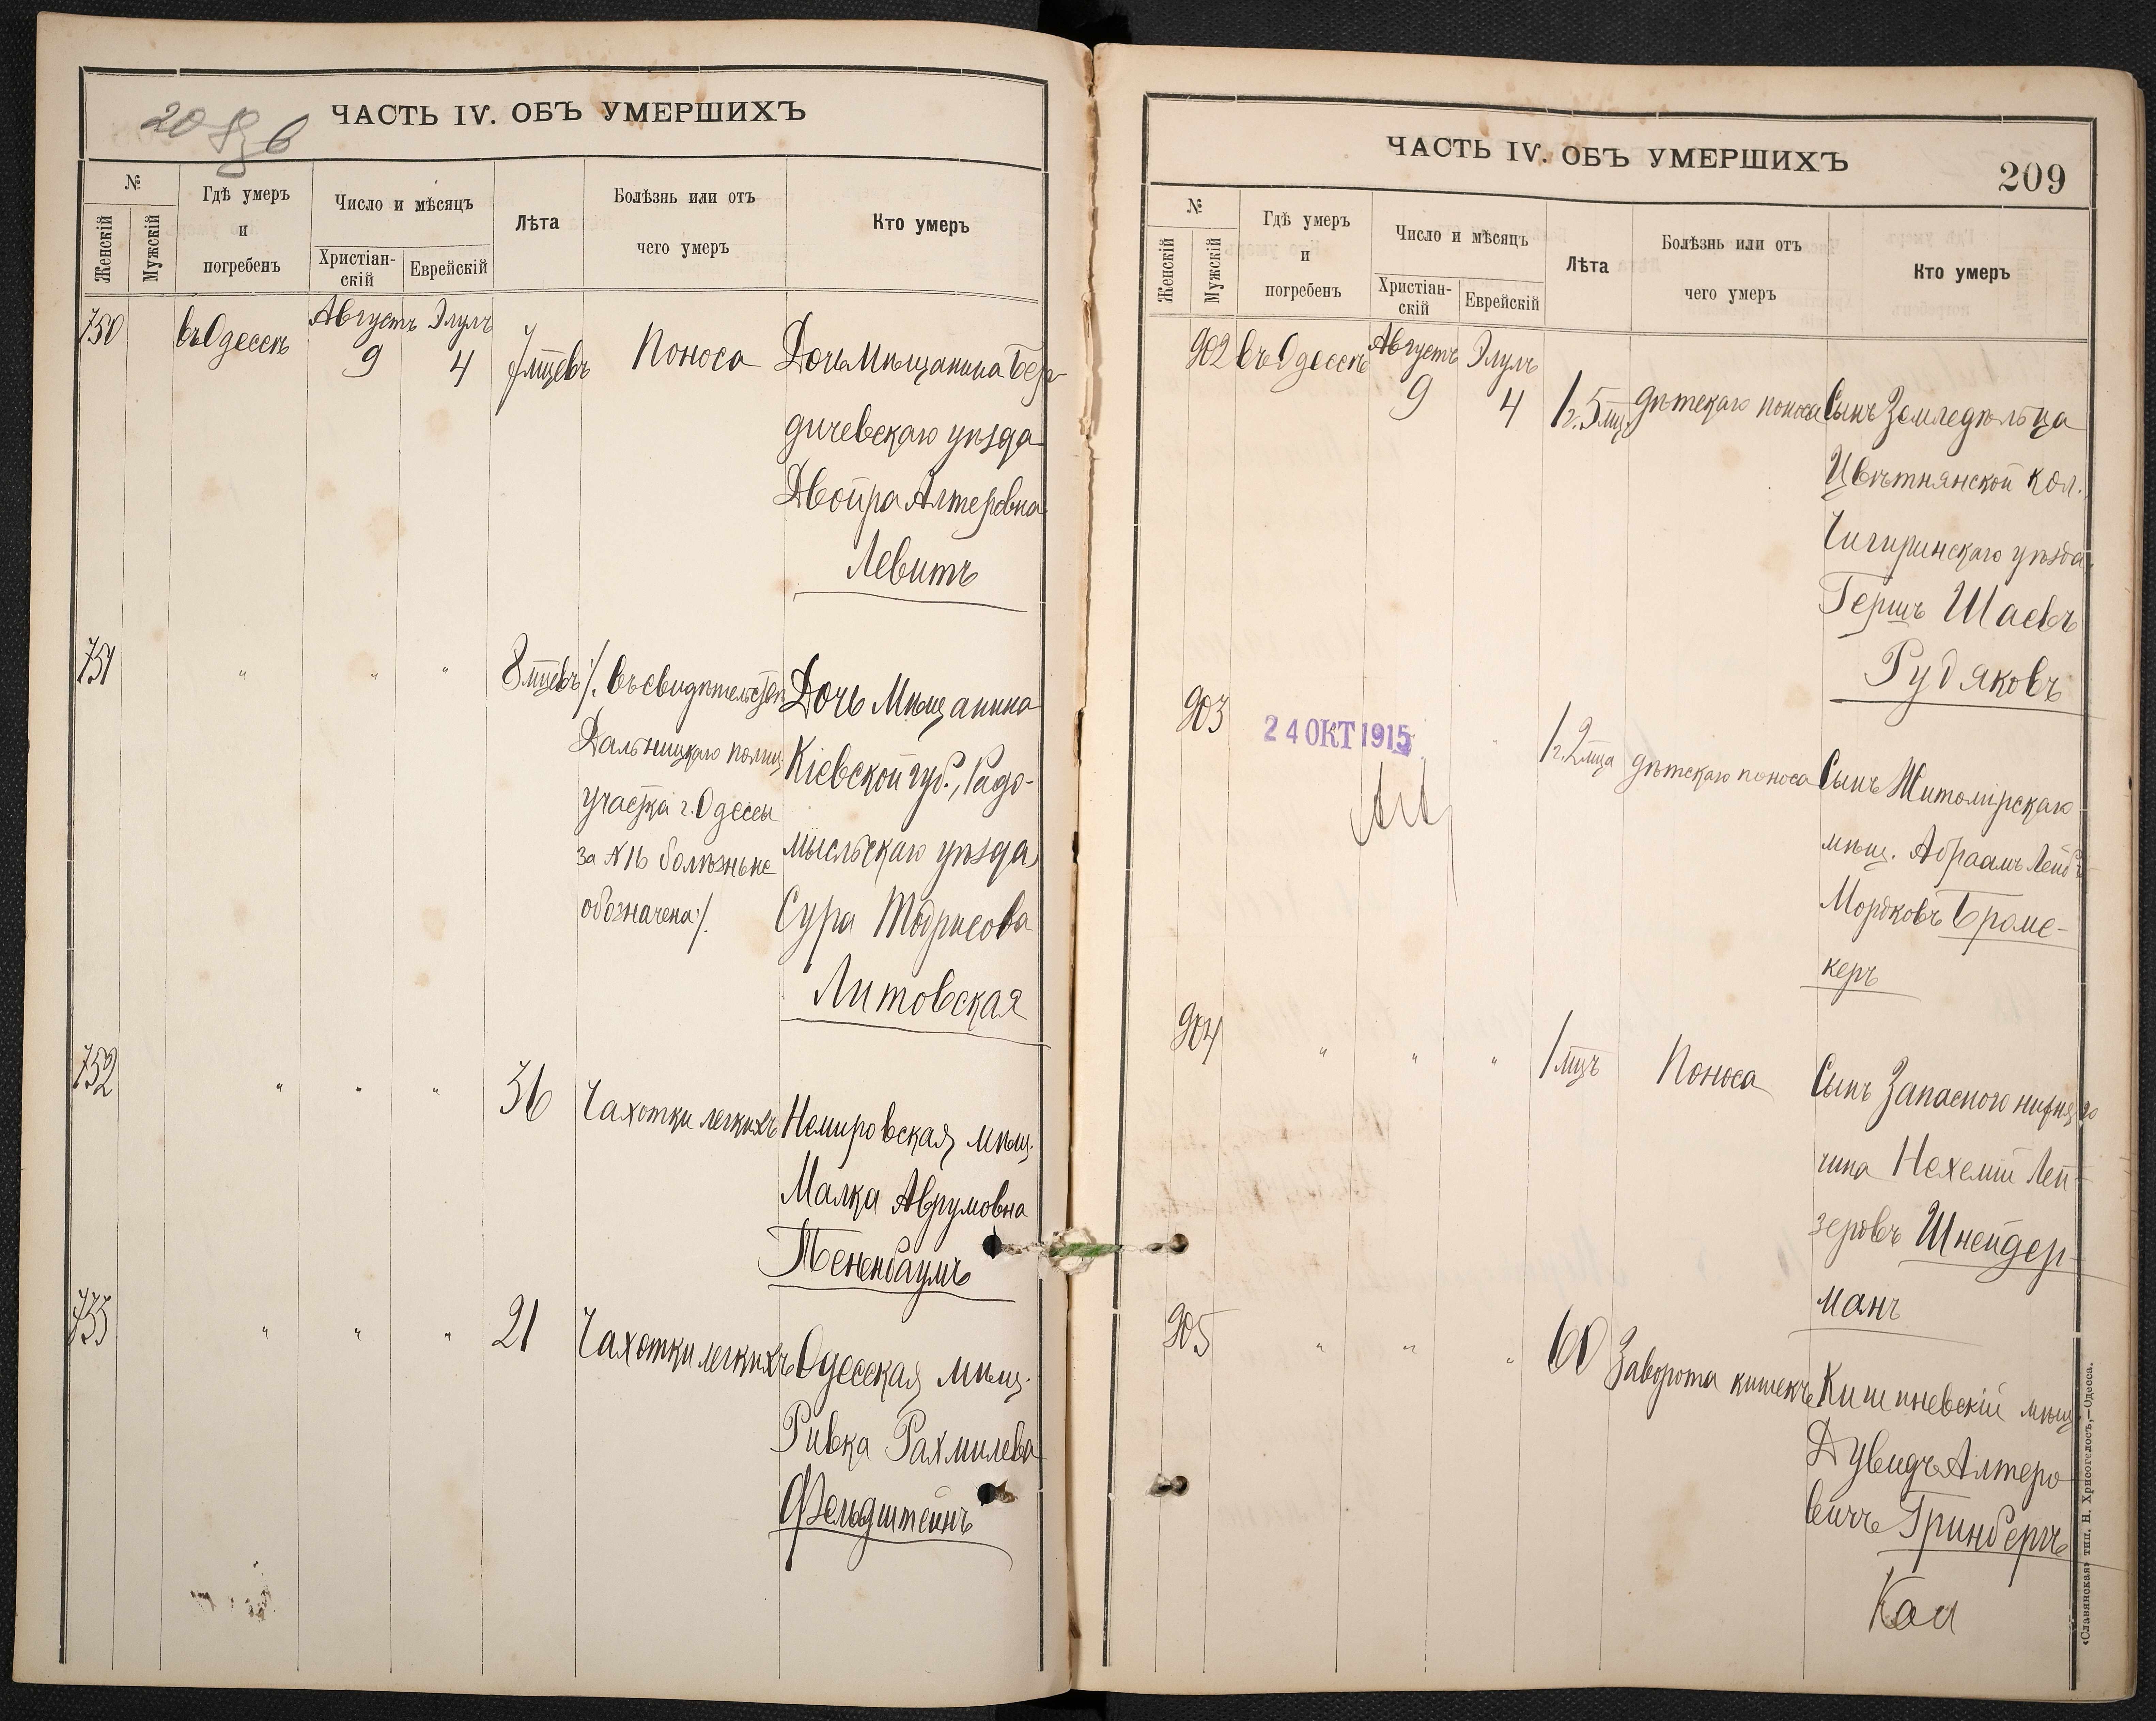 208 об
ЧАСТЬ IV. ОБЪ УМЕРШИХЪ
№
Женскій
Мужскій
Гдѣ умеръ
и
погребенъ
Число и мѣсяцъ
Христіан-
скій
Еврейскій
Лѣта
Болѣзнь или отъ
чего умеръ
Кто умеръ
750
въ Одессѣ
Августъ Элулъ
9 4
7 мцевъ
Поноса
Дочь Мѣщанина Бер-
дичевскаго уѣзда
Двойра Алтеровна
Левитъ
751 " " "
8 мцевъ
/. въ свидѣтельствѣ
Дальницкаго полиц.
участка г. Одессы
за № болѣзнь не
обозначена ./.
Дочь Мѣщанина
Кіевской губ., Радо-
мысльскаго уѣзда,
Сура Тодрисова
Литовская
752 " " "
36
Чахотки легкихъ
Немировская мѣщ.
Малка Аврумовна
Тененбаумъ
753 " " "
21
Чахотки легкихъ
Одесская мѣщ.
Ривка Рахмилева
Фельдштейнъ
ЧАСТЬ IV. ОБЪ УМЕРШИХЪ
209
№
Женскій
Мужскій
Гдѣ умеръ
и
погребенъ
Число и мѣсяцъ
Христіан-
скій
Еврейскій
Лѣта
Болѣзнь или отъ
чего умеръ
Кто умеръ
902
въ Одессѣ
Августъ Элулъ
9 4
1 г. 5 мц.
дѣтскаго поноса
Сынъ Земледѣльца
Цвѣтнянской кол.
Чигиринскаго уѣзда
Гершъ Шаевъ
Рудяковъ
903
24 ОКТ 1915
"
1 г. 2 мца
дѣтскаго поноса
Сынъ Житомірскаго
мѣщ. Абраамъ Лейбъ
Мордковъ Браме-
керъ
904 " " "
1 мцъ
Поноса
Сынъ Запасного нижняго
чина Нехемій Лей-
зеровъ Шнейдер-
манъ
905 " " "
60
Заворота кишекъ
Кишиневскій мѣщ.
Дувидъ Алтеро
вичъ Гринбергъ
«Славянская» тип. Н. Хрисогелосъ,—Одесса.